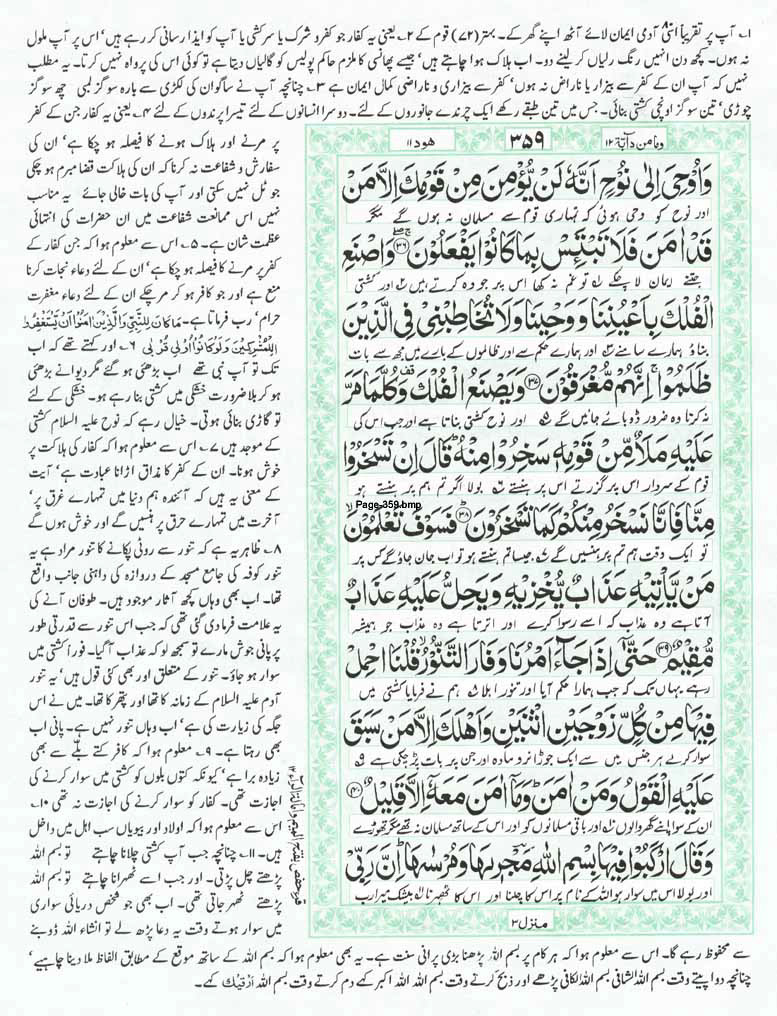 ۱؎ آپ پر تقریباً اسّی آدمی ایمان لائے آٹھ اپنے گھر کے۔ بہتر (۷۲) قوم کے ۲؎ یعنی یہ کفار جو کفر و شرک یا سرکشی یا آپ کو ایذا رسانی کر رہے ہیں' اس پر آپ ملول
نہ ہوں۔ کچھ دن انہیں رنگ رلیاں کر لینے دو۔ اب ہلاک ہوا چاہتے ہیں' جیسے پھانسی کا ملزم حاکم پولیس کو گالیاں دیتا ہے تو کوئی اس کی پرواہ نہیں کرتا۔ یہ مطلب
نہیں کہ آپ ان کے کفر سے بیزار یا ناراض نہ ہوں' کفر سے بیزاری و ناراضی کمال ایمان ہے ۳؎ چنانچہ آپ نے ساگوان کی لکڑی سے بارہ سو گز لمبی چھ سو گز
چوڑی' تین سو گز اونچی کشتی بنائی۔ جس میں تین طبقے رکھے ایک چرندے جانوروں کے لئے۔ دوسرا انسانوں کے لئے تیسرا پرندوں کے لئے ۴؎ یعنی یہ کفار جن کے کفر
ومامن دابة ۱۲
۳۵۹
هود ۱۱
وَاُوْحِیَ اِلٰى نُوْحٍ اَنَّهٗ لَنْ یُّؤْمِنَ مِنْ قَوْمِكَ اِلَّا مَنْ
اور نوح کو وحی ہوئی کہ تمہاری قوم سے مسلمان نہ ہوں گے مگر
قَدْ اٰمَنَ فَلَا تَبْتَىٕسْ بِمَا كَانُوْا یَفْعَلُوْنَ ﴿۳۶﴾ وَاصْنَعِ
جتنے ایمان لا چکے ۱؎ تو غم نہ کھا اس پر جو وہ کرتے ہیں ۲؎ اور کشتی
الْفُلْكَ بِاَعْیُنِنَا وَوَحْیِنَا وَلَا تُخَاطِبْنِیْ فِی الَّذِیْنَ
بناؤ ہمارے سامنے ۳؎ اور ہمارے حکم سے اور ظالموں کے بارے میں مجھ سے بات
ظَلَمُوْا ۚ اِنَّهُمْ مُّغْرَقُوْنَ ﴿۳۷﴾ وَیَصْنَعُ الْفُلْكَ ۫ وَكُلَّمَا مَرَّ
نہ کرنا وہ ضرور ڈوبائے جائیں گے ۵؎ اور نوح کشتی بناتا ہے اور جب اس کی
عَلَیْهِ مَلَاٌ مِّنْ قَوْمِهٖ سَخِرُوْا مِنْهُ ؕ قَالَ اِنْ تَسْخَرُوْا
قوم کے سردار اس پر گزرتے اس پر ہنستے ۶؎ بولا اگر تم ہم پر ہنستے ہو
Page-359.bmp
مِنَّا فَاِنَّا نَسْخَرُ مِنْكُمْ كَمَا تَسْخَرُوْنَ ﴿۳۸﴾ فَسَوْفَ تَعْلَمُوْنَ ۙ
تو ایک وقت ہم تم پر ہنسیں گے ۷؎ جیسا تم ہنستے ہو تو اب جان جاؤ گے کس پر
مَنْ یَّاْتِیْهِ عَذَابٌ یُّخْزِیْهِ وَیَحِلُّ عَلَیْهِ عَذَابٌ
آتا ہے وہ عذاب کہ اسے رسوا کرے اور اترتا ہے وہ عذاب جو ہمیشہ
مُّقِیْمٌ ﴿۳۹﴾ حَتّٰۤى اِذَا جَآءَ اَمْرُنَا وَفَارَ التَّنُّوْرُ ۙ قُلْنَا احْمِلْ
رہے یہاں تک کہ جب ہمارا حکم آیا اور تنور ابلا ۸؎ ہم نے فرمایا کشتی میں
فِیْهَا مِنْ كُلٍّ زَوْجَیْنِ اثْنَیْنِ وَاَهْلَكَ اِلَّا مَنْ سَبَقَ
سوار کر لے ہر جنس میں سے ایک جوڑا نر و مادہ اور جن پر بات پڑ چکی ہے ۹؎
عَلَیْهِ الْقَوْلُ وَمَنْ اٰمَنَ ؕ وَمَاۤ اٰمَنَ مَعَهٗۤ اِلَّا قَلِیْلٌ ﴿۴۰﴾
ان کے سوا اپنے گھر والوں ۱۰؎ اور باقی مسلمانوں کو اور اس کے ساتھ مسلمان نہ تھے مگر تھوڑے
وَقَالَ ارْكَبُوْا فِیْهَا بِسْمِ اللّٰهِ مَجْرٖىهَا وَمُرْسٰىهَا ؕ اِنَّ رَبِّیْ
اور بولا اس میں سوار ہو اللہ کے نام پر اس کا چلنا اور اس کا ٹھہرنا ۱۱؎ بیشک میرا رب
منزل ۳
پر مرنے اور ہلاک ہونے کا فیصلہ ہو چکا ہے' ان کی
سفارش و شفاعت نہ کرنا کہ ان کی ہلاکت قضا مبرم ہو چکی
جو ٹل نہیں سکتی اور آپ کی بات خالی جائے یہ مناسب
نہیں اس ممانعت شفاعت میں ان حضرات کی انتہائی
عظمت شان ہے۔ ۵؎ اس سے معلوم ہوا کہ جن کفار کے
کفر پر مرنے کا فیصلہ ہو چکا ہے' ان کے لئے دعاء نجات کرنا
منع ہے اور جو کافر ہو کر مر چکے ان کے لئے دعاء مغفرت
حرام' رب فرماتا ہے۔ مَا كَانَ لِلنَّبِيِّ وَالَّذِيْنَ اٰمَنُوْا اَنْ يَّسْتَغْفِرُوْا
لِلْمُشْرِكِيْنَ وَلَوْ كَانُوْا اُولِيْ قُرْبٰى ۶؎ اور کہتے تھے کہ اب
تک تو آپ نبی تھے اب بڑھئی ہو گئے مگر دیوانے بڑھئی
ہو کر بلا ضرورت خشکی میں کشتی بنا رہے ہو۔ خشکی کے لئے
تو گاڑی بنائی ہوتی۔ خیال رہے کہ نوح علیہ السلام کشتی
کے موجد ہیں ۷؎ اس سے معلوم ہوا کہ کفار کی ہلاکت پر
خوش ہونا۔ ان کے کفر کا مذاق اڑانا عبادت ہے' آیت
کے معنی یہ ہیں کہ آئندہ ہم دنیا میں تمہارے غرق پر'
آخرت میں تمہارے حرق پر ہنسیں گے اور خوش ہوں گے
۸؎ ظاہر یہ ہے کہ تنور سے روٹی پکانے کا تنور مراد ہے یہ
تنور کوفہ کی جامع مسجد کے دروازہ کی داہنی جانب واقع
تھا۔ اب بھی وہاں کچھ آثار موجود ہیں۔ طوفان آنے کی
یہ علامت فرما دی گئی تھی کہ جب اس تنور سے قدرتی طور
پر پانی جوش مارے تو سمجھ لو کہ عذاب آ گیا۔ فوراً کشتی میں
سوار ہو جاؤ۔ تنور کے متعلق اور بھی کئی قول ہیں' یہ تنور
آدم علیہ السلام کے زمانہ کا تھا اور پتھر کا تھا۔ میں نے اس
جگہ کی زیارت کی ہے' اب وہاں تنور نہیں ہے۔ پانی اب
بھی رہتا ہے۔ ۹؎ معلوم ہوا کہ کافر کتے بلے سے بھی
زیادہ برا ہے' کیونکہ کتوں بلوں کو کشتی میں سوار کرنے کی
اجازت تھی۔ کفار کو سوار کرنے کی اجازت نہ تھی ۱۰؎
اس سے معلوم ہوا کہ اولاد اور بیویاں سب اہل میں داخل
ہیں۔ ۱۱؎ چنانچہ جب آپ کشتی چلانا چاہتے تو بسم اللہ
پڑھتے چل پڑتی۔ اور جب اسے ٹھہرانا چاہتے تو بسم اللہ
پڑھتے ٹھہر جاتی تھی۔ اب بھی جو شخص دریائی سواری
میں سوار ہوتے وقت یہ دعا پڑھ لے تو انشاء اللہ ڈوبنے
سے محفوظ رہے گا۔ اس سے معلوم ہوا کہ ہر کام پر بسم اللہ پڑھنا بڑی پرانی سنت ہے۔ یہ بھی معلوم ہوا کہ بسم اللہ کے ساتھ موقع کے مطابق الفاظ ملا دینا چاہیے'
چنانچہ دوا پیتے وقت بسم اللہ الشافی بسم اللہ الکافی پڑھے اور ذبح کرتے وقت بسم اللہ اللہ اکبر کہے دم کرتے وقت بسم اللہ اَرْقِيْكَ کہے۔